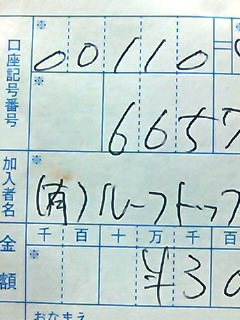 口座記号番号
※
00110=
6657
加入者名
※
(有)ルーフトップ
千 百 十 万 千 百
金額
※
¥30
おなまえ